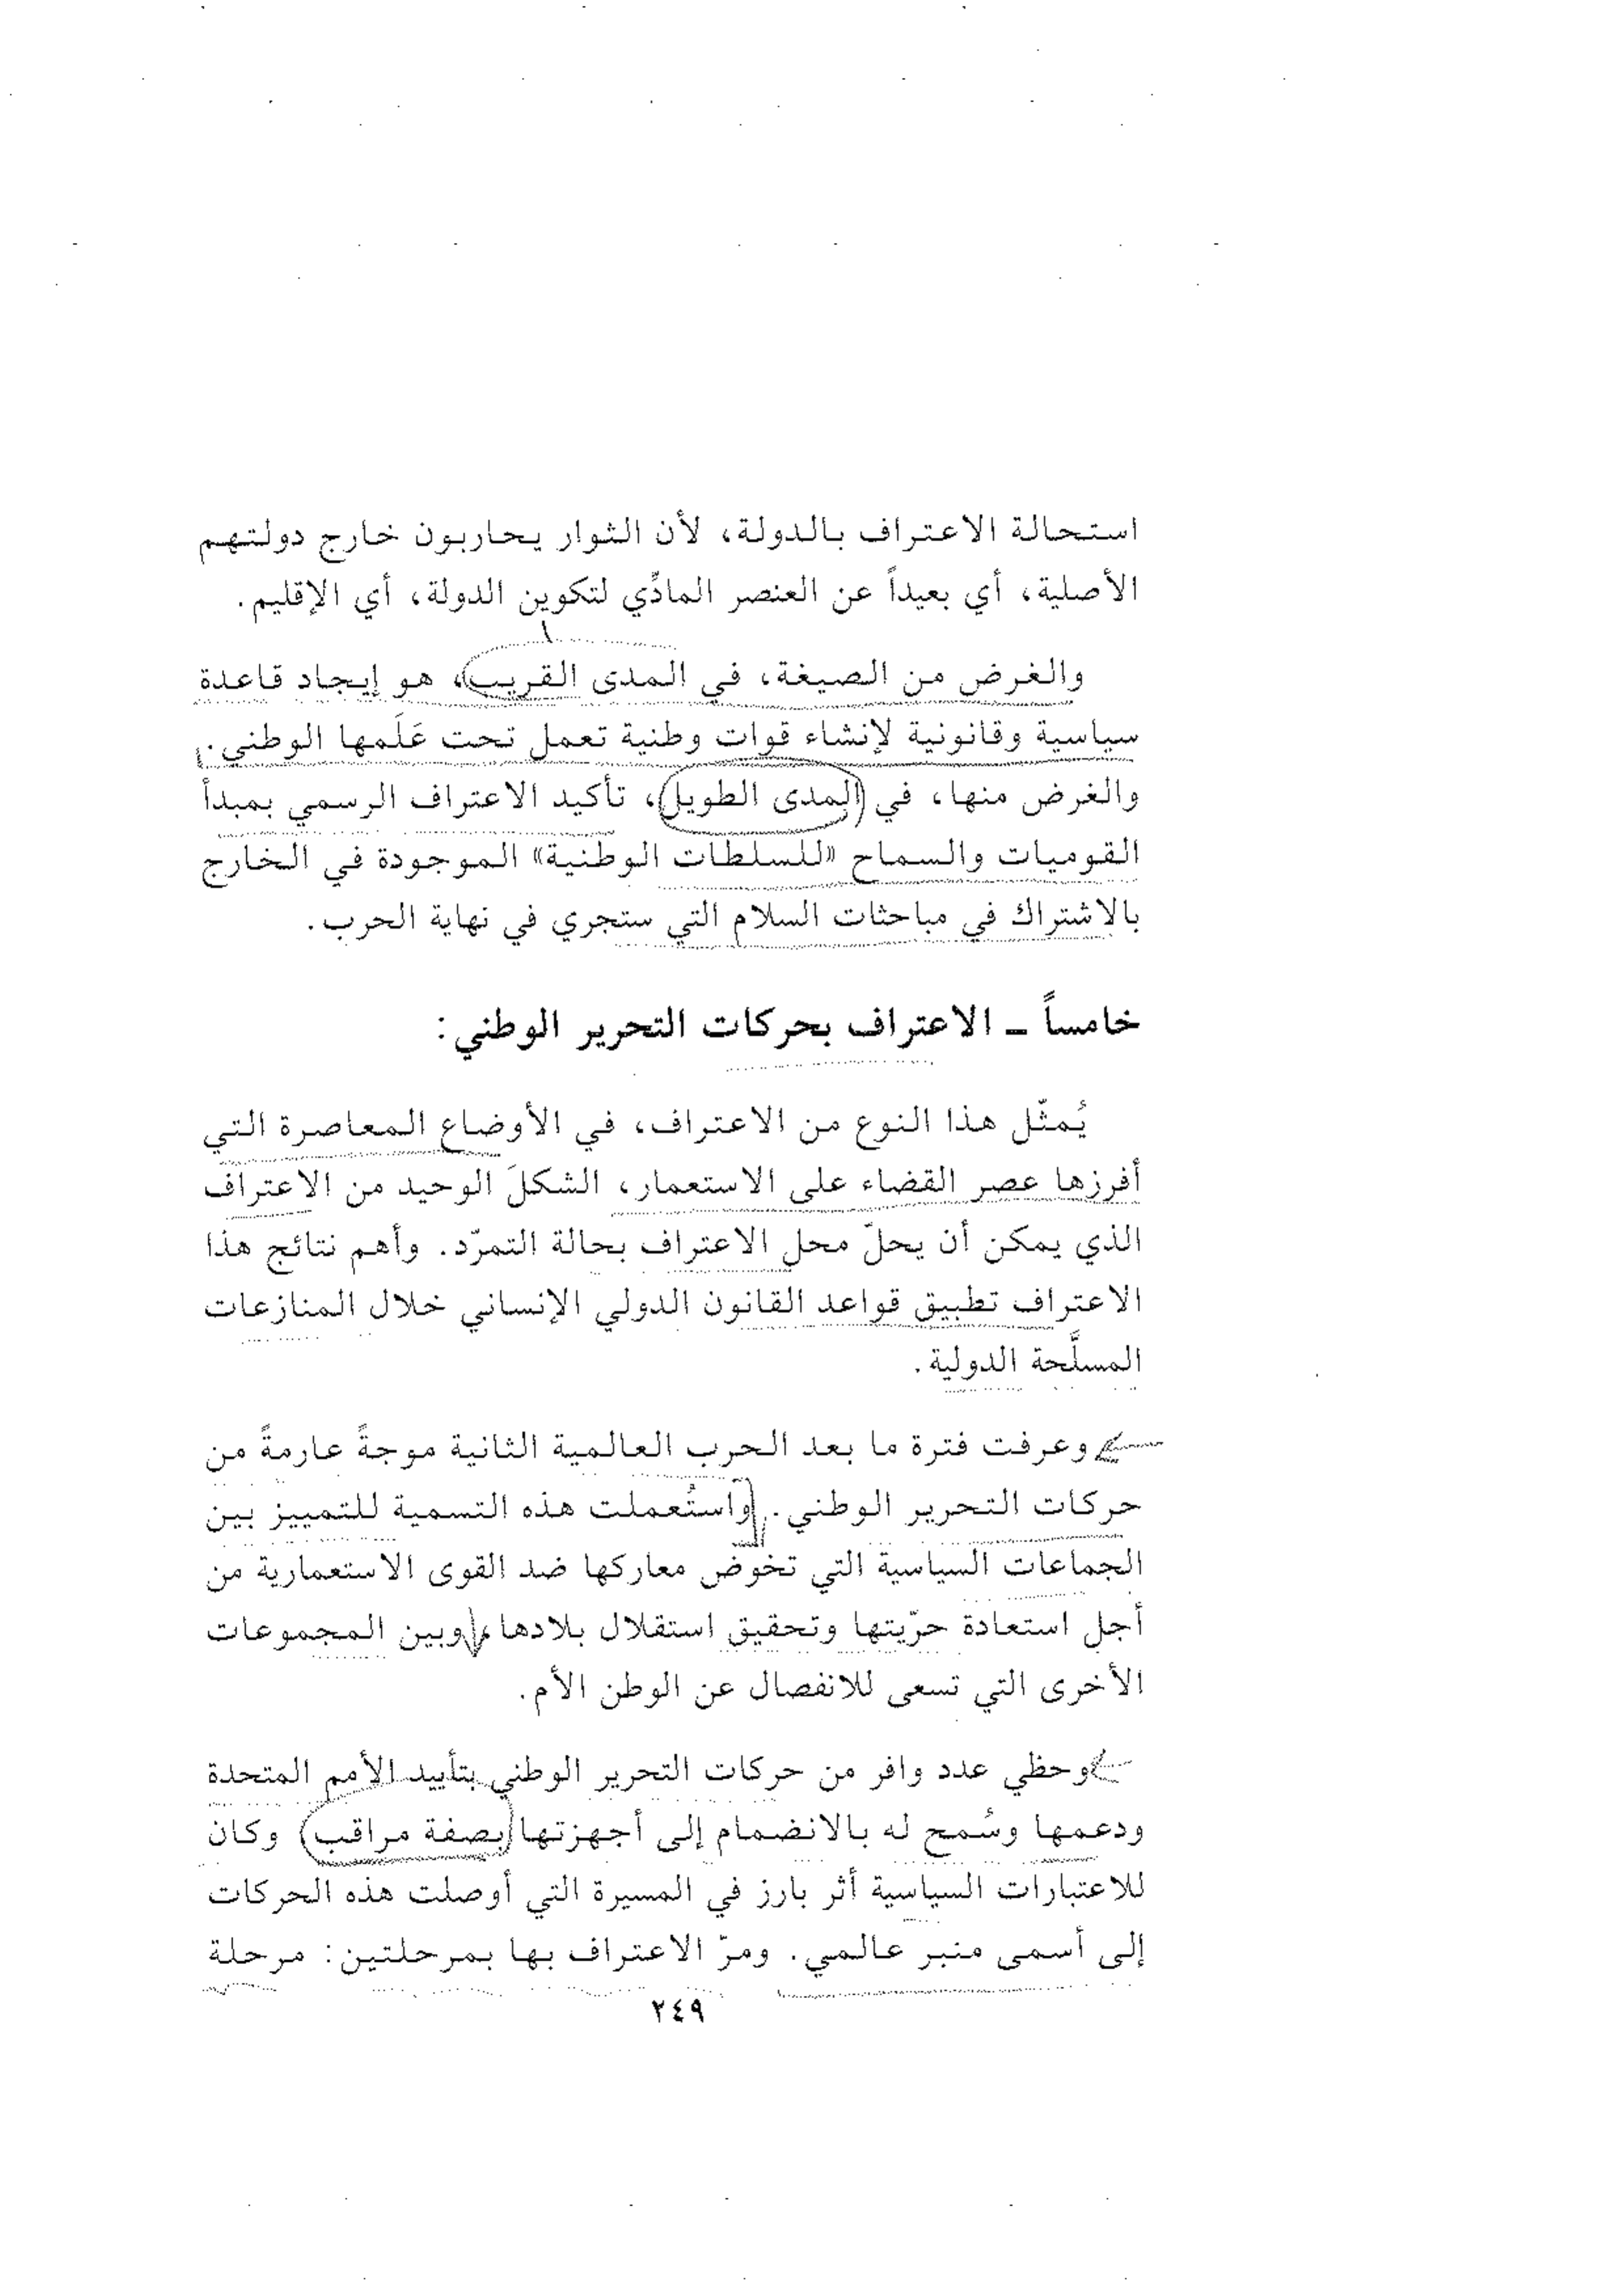 استحالة الاعتراف بالدولة، لأن الثوار يحاربون خارج دولتهم
الأصلية، أي بعيداً عن العنصر المادِّي لتكوين الدولة، أي الإقليم.
والغرض من الصيغة، في المدى القريب، هو إيجاد قاعدة
سياسية وقانونية لإنشاء قوات وطنية تعمل تحت عَلَمها الوطني.
والغرض منها، في المدى الطويل، تأكيد الاعتراف الرسمي بمبدأ
القوميات والسماح «للسلطات الوطنية» الموجودة في الخارج
بالاشتراك في مباحثات السلام التي ستجري في نهاية الحرب.
خامساً ــ الاعتراف بحركات التحرير الوطني:
يُمثّل هذا النوع من الاعتراف، في الأوضاع المعاصرة التي
أفرزها عصر القضاء على الاستعمار، الشكلَ الوحيد من الاعتراف
الذي يمكن أن يحلّ محل الاعتراف بحالة التمرّد. وأهم نتائج هذا
الاعتراف تطبيق قواعد القانون الدولي الإنساني خلال المنازعات
المسلَّحة الدولية.
وعرفت فترة ما بعد الحرب العالمية الثانية موجةً عارمةً من
حركات التحرير الوطني. واستُعملت هذه التسمية للتمييز بين
الجماعات السياسية التي تخوض معاركها ضد القوى الاستعمارية من
أجل استعادة حرّيتها وتحقيق استقلال بلادها، وبين المجموعات
الأخرى التي تسعى للانفصال عن الوطن الأم.
وحظي عدد وافر من حركات التحرير الوطني بتأييد الأمم المتحدة
ودعمها وسُمح له بالانضمام إلى أجهزتها (بصفة مراقب) وكان
للاعتبارات السياسية أثر بارز في المسيرة التي أوصلت هذه الحركات
إلى أسمى منبر عالمي. ومرّ الاعتراف بها بمرحلتين: مرحلة
٢٤٩